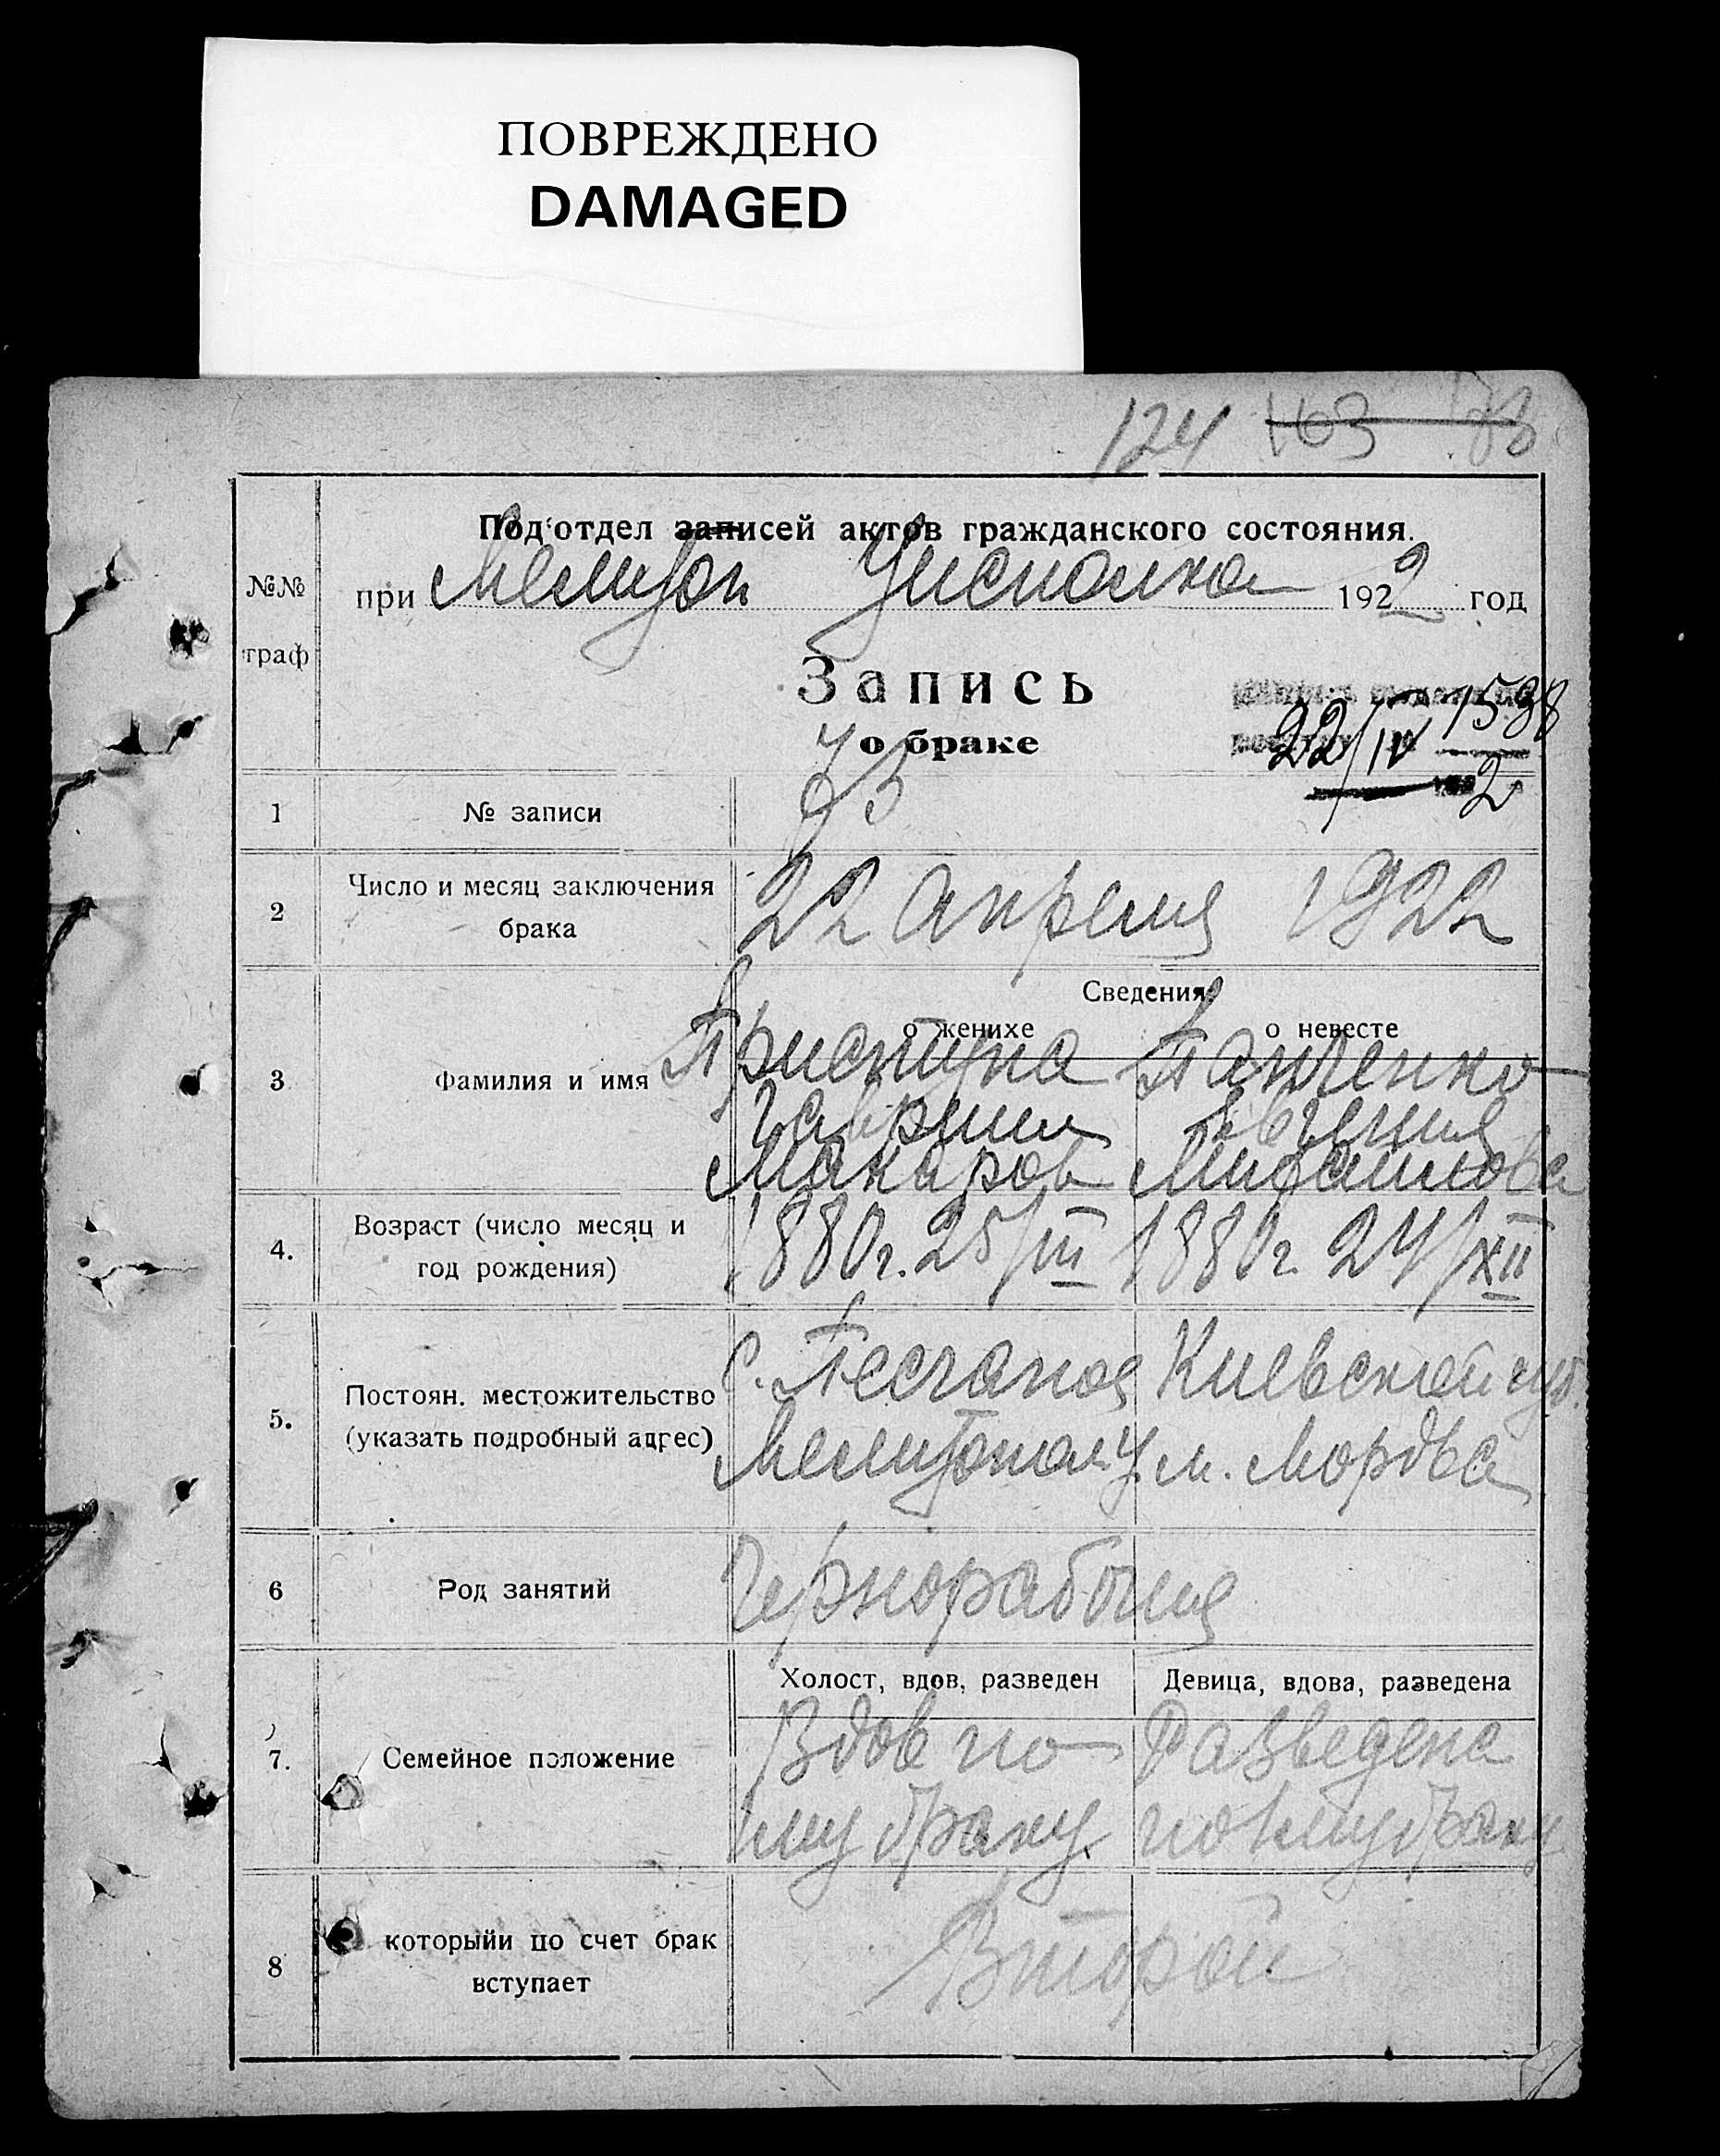 ПОВРЕЖДЕНО
DAMAGED
124 163
Под'отдел записей актов гражданского состояния.
при Мелитоп Уисполком 1922 год
№№
граф
Запись
о браке
22/IV 1538
2
1 № записи 73
2 Число и месяц заключения брака 22 апреля 1922
Сведения
о женихе о невесте
3 Фамилия и имя Приступа Панченко
Гавриил Евгения
Макаров Михайлова
4. Возраст (число месяц и год рождения) 1880г. 25/III 1880г. 24/XII
5. Постоян. местожительство (указать подробный адрес) с. Песчаное Киевской губ.
Мелитопол. У. м. Мордва
6 Род занятий Чернорабочия
Холост, вдов, разведен Девица, вдова, разведена
7. Семейное положение Вдов по Разведена
1му браку. по 1му браку
8 которыйи по счет брак вступает Второй